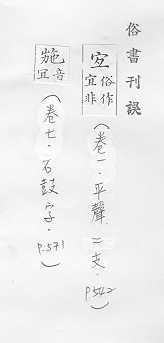 俗書刊誤
宐 俗作宜非
(卷一·平聲二支·P.542)
䵄 音宜
(卷七·石鼓字·P.571)